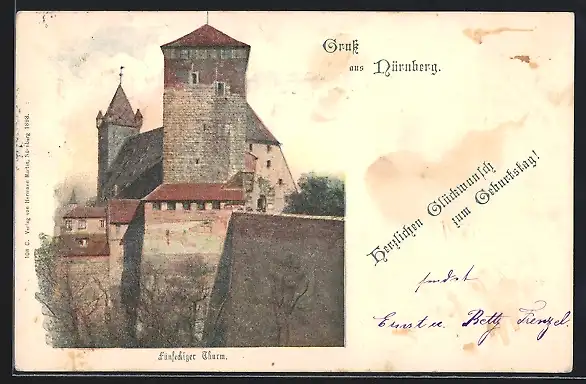 Gruß
aus Nürnberg.
Herzlichen Glückwunsch
zum Geburtstag!
sendet
Ernst u. Betty Frenzel.
Fünfeckiger Thurm.
Verlag von Hermann Martin, Nürnberg 1898.